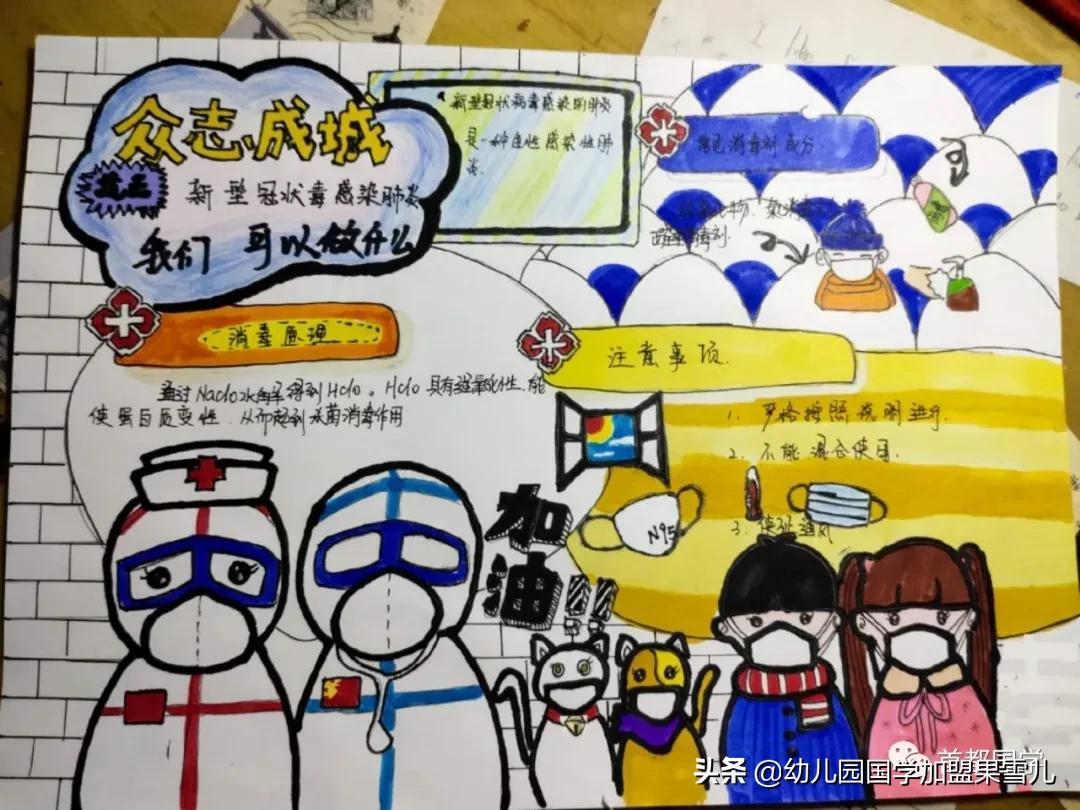 众志成城
新型冠状毒感染肺炎
我们 可以做什么
新型冠状病毒感染的肺炎
是一种急性感染性肺
炎.
常见消毒剂成分
消毒原理
通过NaClO水解得到HClO。HClO具有强氧化性.能
使蛋白质变性.从而起到杀菌消毒作用
注意事项.
1. 严格按照说明进行.
2. 不能混合使用.
3. 使处通风
N95
加
油!!
首都国学
头条 @幼儿园国学加盟果雪儿